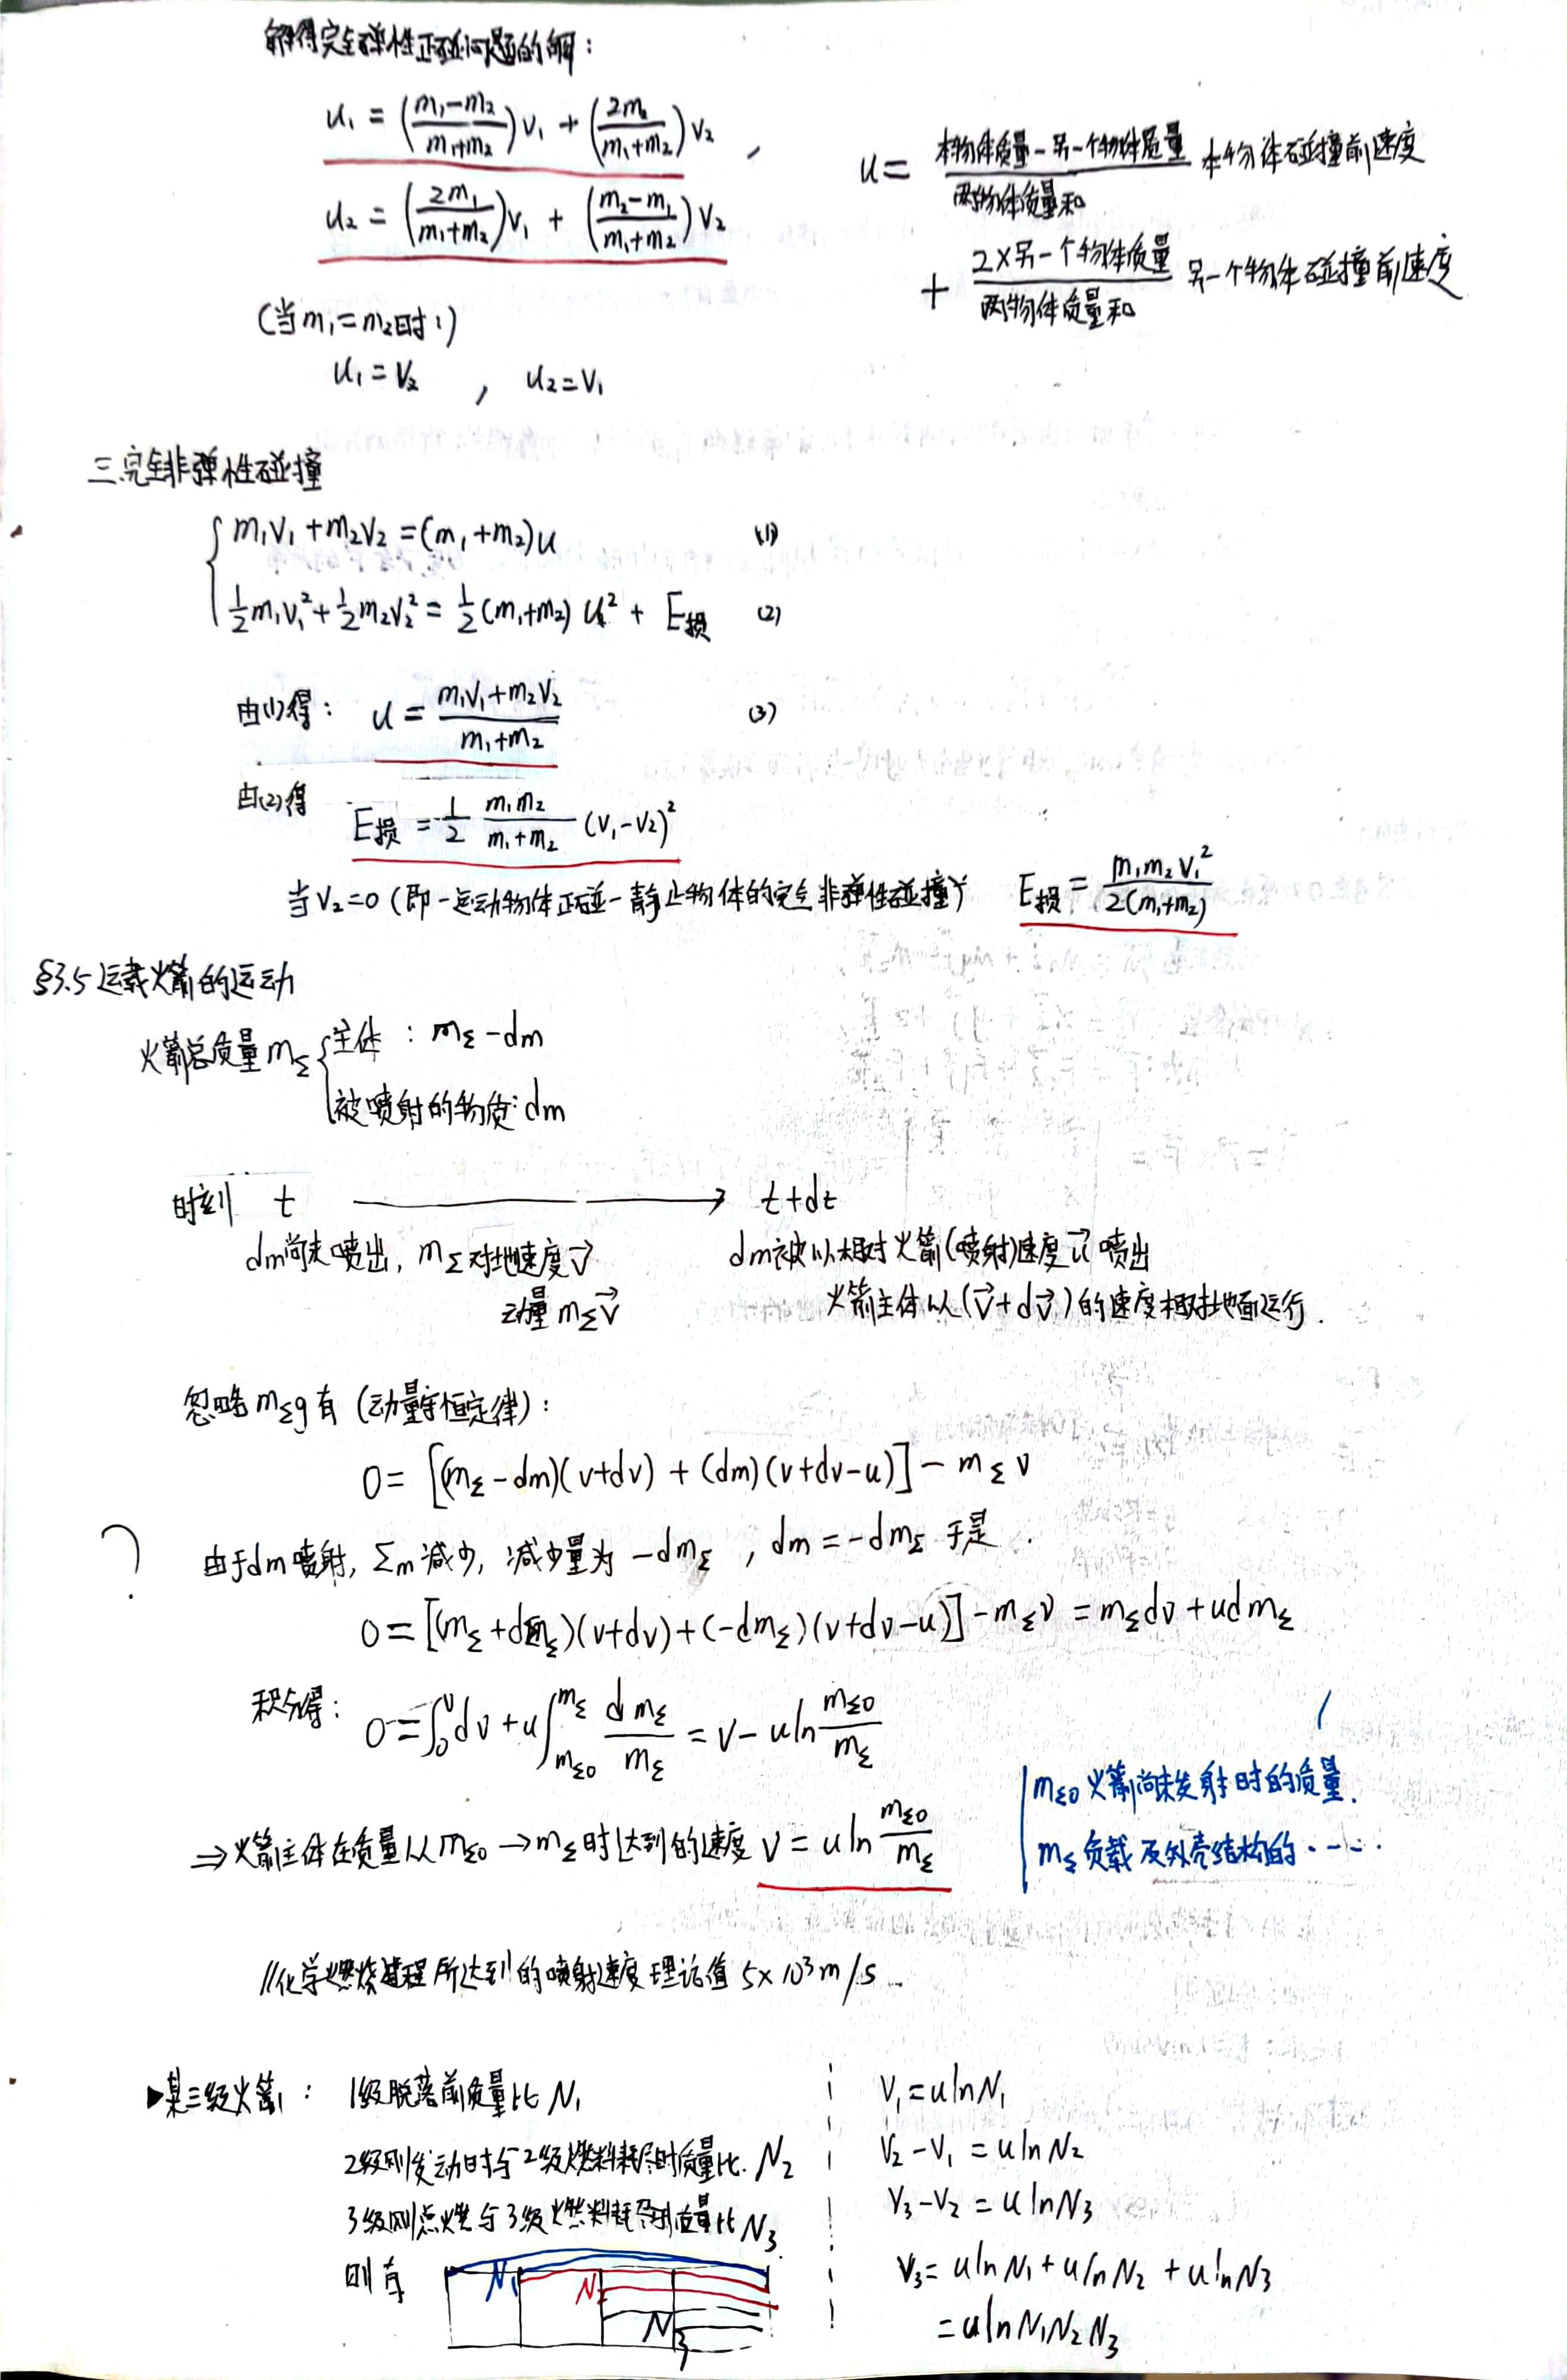 解得完全弹性正碰问题的解:
u₁ = ((m₁-m₂)/(m₁+m₂))v₁ + (2m₂/(m₁+m₂))v₂ ,
u₂ = (2m₁/(m₁+m₂))v₁ + ((m₂-m₁)/(m₁+m₂))v₂
u = (本物体质量-另一个物体质量)/(两物体质量和) 本物体碰撞前速度
+ (2×另一个物体质量)/(两物体质量和) 另一个物体碰撞前速度
(当m₁=m₂时:)
u₁=v₂ , u₂=v₁
三.完全非弹性碰撞
m₁v₁+m₂v₂=(m₁+m₂)u (1)
½m₁v₁²+½m₂v₂²=½(m₁+m₂)u²+E损 (2)
由(1)得: u=(m₁v₁+m₂v₂)/(m₁+m₂) (3)
由(2)得 E损=½ (m₁m₂)/(m₁+m₂) (v₁-v₂)²
当v₂=0(即一运动物体正碰一静止物体的完全非弹性碰撞) E损=(m₁m₂v₁²)/(2(m₁+m₂))
§3.5 运载火箭的运动
火箭总质量 mΣ
主体: mΣ-dm
被喷射的物质:dm
时刻 t ⟶ t+dt
dm尚未喷出, mΣ对地速度v⃗
动量mΣv⃗
dm被以相对火箭(喷射)速度u⃗喷出
火箭主体以(v⃗+dv⃗)的速度相对地面运行.
忽略mΣg有(动量守恒定律):
0=[(mΣ-dm)(v+dv)+(dm)(v+dv-u)]-mΣv
? 由于dm喷射, Σm减少, 减少量为-dmΣ, dm=-dmΣ 于是.
0=[(mΣ+dmΣ)(v+dv)+(-dmΣ)(v+dv-u)]-mΣv=mΣdv+udmΣ
积分得: 0=∫₀ᵛdv+u∫_{mΣ0}^{mΣ} dmΣ/mΣ = v-uln mΣ0/mΣ
⇒火箭主体在质量从mΣ0→mΣ时达到的速度 v=uln mΣ0/mΣ
mΣ0 火箭尚未发射时的质量.
mΣ 负载及外壳结构的.....
//化学燃烧过程所达到的喷射速度理论值 5×10³m/s
▶某三级火箭: 1级脱落前质量比 N₁
2级刚发动时与2级燃料耗尽时质量比. N₂
3级刚点燃与3级燃料耗尽时质量比 N₃.
则有
N₁ N₂ N₃
v₁=ulnN₁
v₂-v₁=ulnN₂
v₃-v₂=ulnN₃
v₃=ulnN₁+ulnN₂+ulnN₃
=ulnN₁N₂N₃